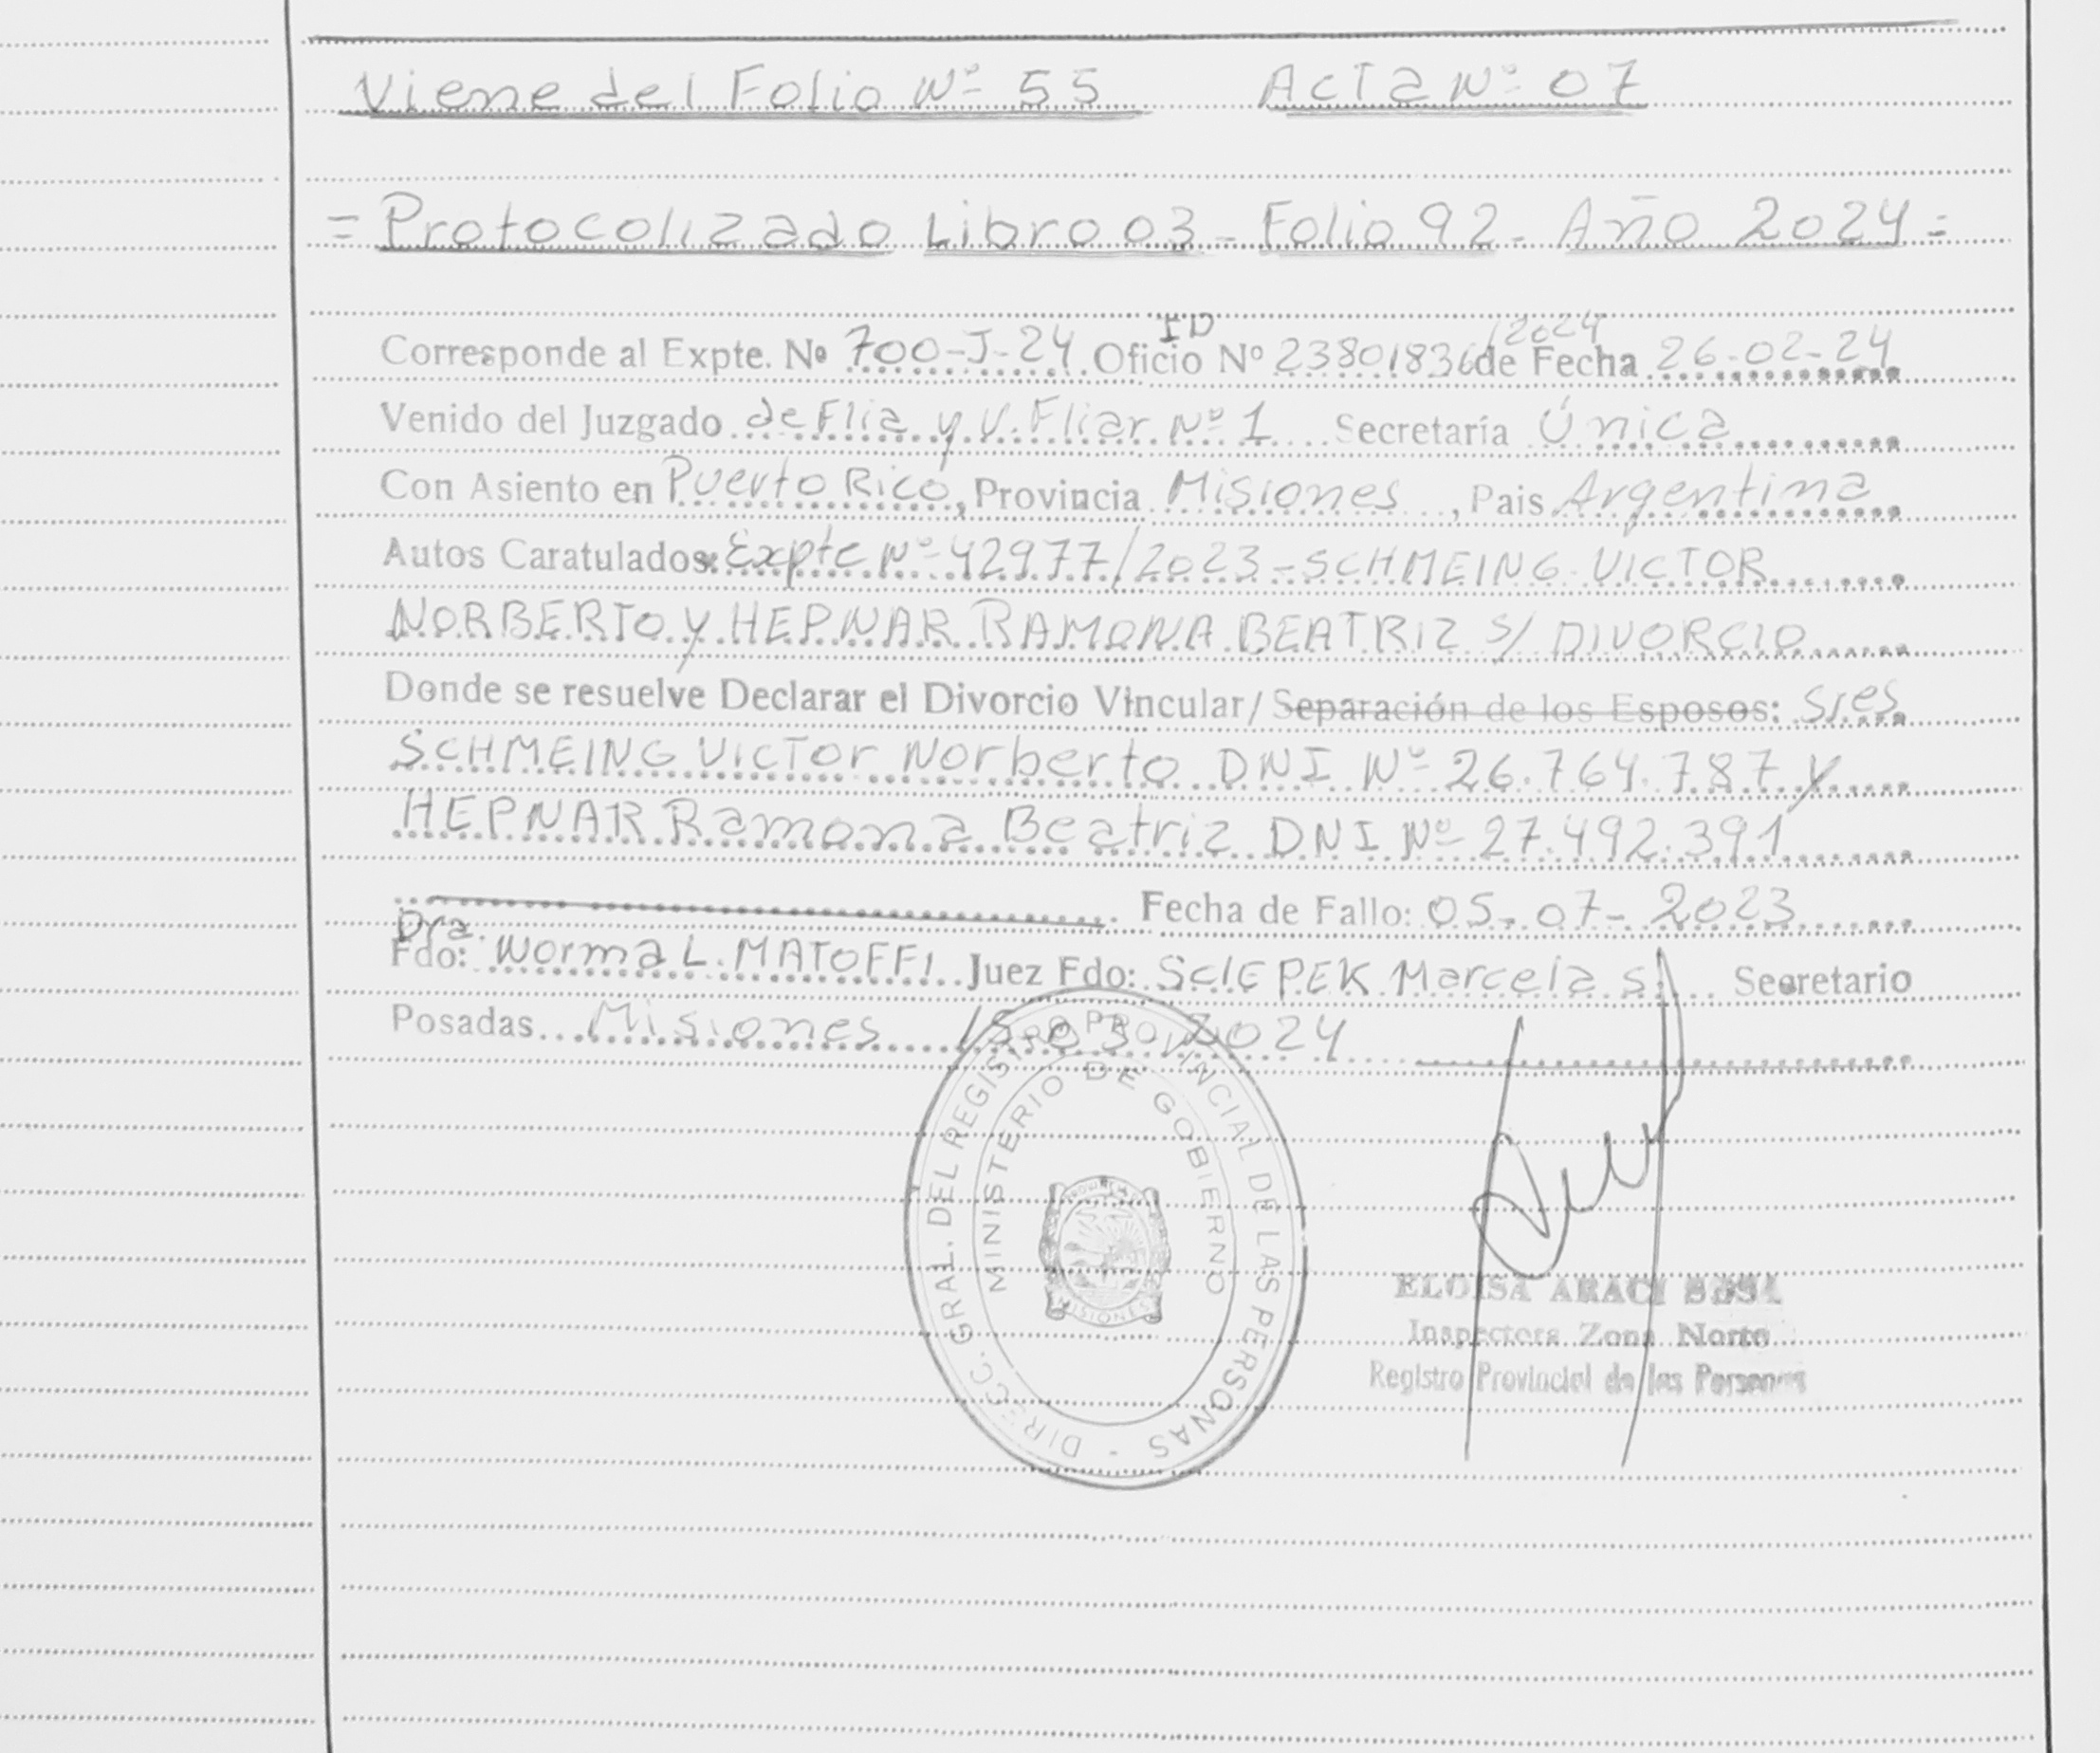 Viene del Folio Nº 55 Acta Nº 07
= Protocolizado Libro 03 - Folio 92 - Año 2024 =
Corresponde al Expte. Nº 700-J-24 Oficio ID Nº 23801836/2024 de Fecha 26-02-24
Venido del Juzgado de Flia y V. Fliar Nº 1 Secretaría Única
Con Asiento en Puerto Rico, Provincia Misiones, Pais Argentina
Autos Caratulados: Expte Nº 42977/2023 - SCHMEING VICTOR
NORBERTO y HEPNAR RAMONA BEATRIZ S/ DIVORCIO
Donde se resuelve Declarar el Divorcio Vincular/ Separación de los Esposos: Sres
SCHMEING Victor Norberto DNI Nº 26.764.787 y
HEPNAR Ramona Beatriz DNI Nº 27.492.391
Fecha de Fallo: 05-07-2023
Dra.
Fdo: Norma L. MATOFFI Juez Fdo: SclEPEK Marcela S. Secretario
Posadas Misiones 15-03-2024
DIRECC. GRAL. DEL REGISTRO PROVINCIAL DE LAS PERSONAS -
MINISTERIO DE GOBIERNO
MISIONES
ELOISA ARACI
Inspectora Zona Norte
Registro Provincial de las Personas